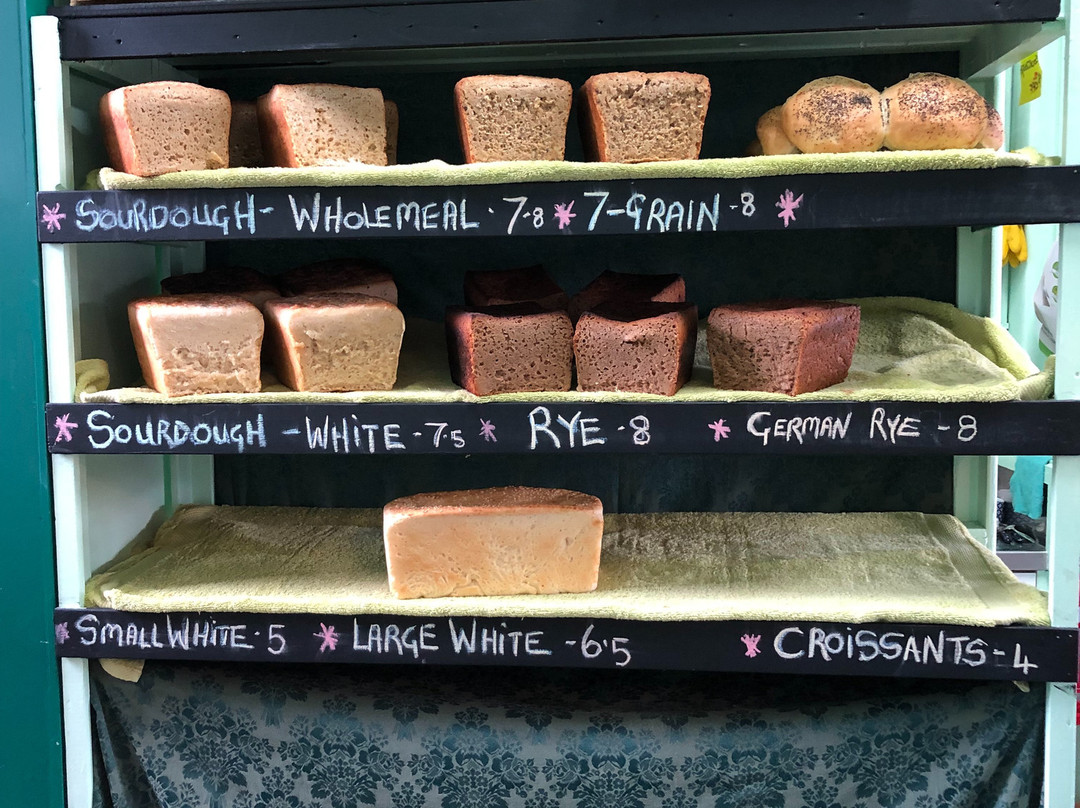 * SOURDOUGH - WHOLEMEAL · 7·8 * 7-GRAIN - 8 *
* SOURDOUGH - WHITE - 7·5 * RYE - 8 * GERMAN RYE - 8
* SMALL WHITE · 5 * LARGE WHITE - 6·5 * CROISSANTS - 4